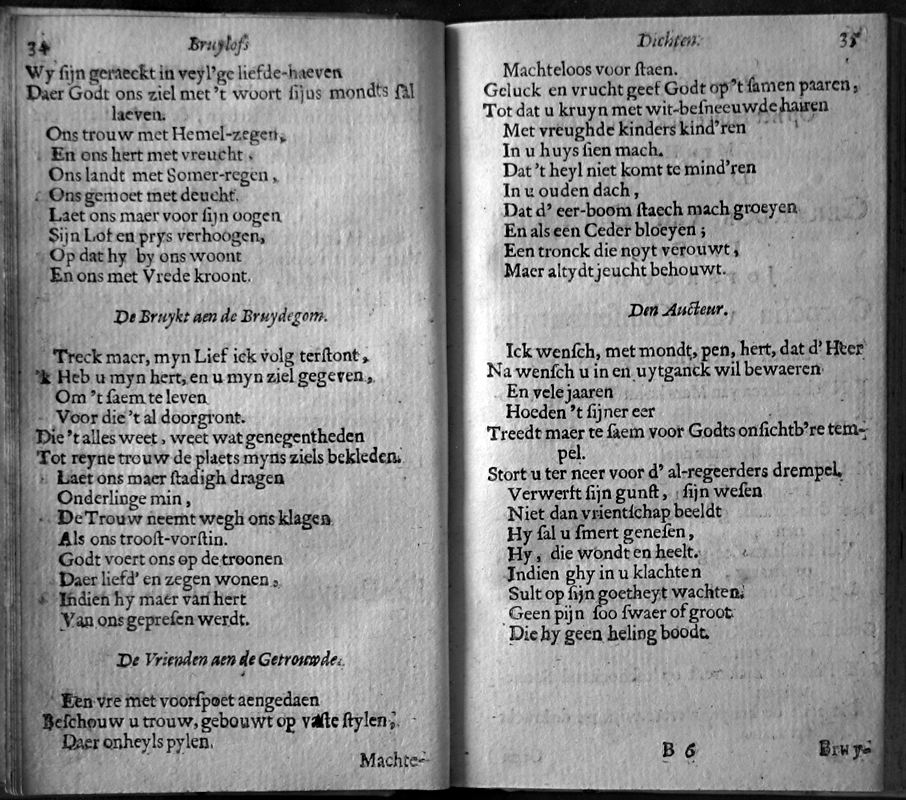 34 Bruylofs
Wy ſijn geraeckt in veyl'ge liefde-haeven
Daer Godt ons ziel met 't woort ſijns mondts ſal
laeven.
Ons trouw met Hemel-zegen,
En ons hert met vreucht,
Ons landt met Somer-regen,
Ons gemoet met deucht.
Laet ons maer voor ſijn oogen
Sijn Lof en prys verhoogen,
Op dat hy by ons woont
En ons met Vrede kroont.
De Bruykt aen de Bruydegom.
Treck maer, myn Lief ick volg terſtont,
'k Heb u myn hert, en u myn ziel gegeven,
Om 't ſaem te leven
Voor die 't al doorgront.
Die 't alles weet, weet wat genegentheden
Tot reyne trouw de plaets myns ziels bekleden.
Laet ons maer ſtadigh dragen
Onderlinge min,
De Trouw neemt wegh ons klagen
Als ons trooſt-vorſtin.
Godt voert ons op de troonen
Daer liefd' en zegen wonen,
Indien hy maer van hert
Van ons gepreſen werdt.
De Vrienden aen de Getrouwde.
Een vre met voorſpoet aengedaen
Beſchouw u trouw, gebouwt op vaſte ſtylen,
Daer onheyls pylen.
Machte-
Dichten. 35
Machteloos voor ſtaen.
Geluck en vrucht geef Godt op 't ſamen paaren,
Tot dat u kruyn met wit-beſneeuwde hairen
Met vreughde kinders kind'ren
In u huys ſien mach.
Dat 't heyl niet komt te mind'ren
In u ouden dach,
Dat d' eer-boom ſtaech mach groeyen
En als een Ceder bloeyen;
Een tronck die noyt verouwt,
Maer altydt jeucht behouwt.
Den Aucteur.
Ick wenſch, met mondt, pen, hert, dat d' Heer
Na wenſch u in en uytganck wil bewaeren
En vele jaaren
Hoeden 't ſijner eer
Treedt maer te ſaem voor Godts onſichtb're tem-
pel.
Stort u ter neer voor d' al-regeerders drempel,
Verwerft ſijn gunſt, ſijn weſen
Niet dan vrientſchap beeldt
Hy ſal u ſmert geneſen,
Hy, die wondt en heelt.
Indien ghy in u klachten
Sult op ſijn goetheyt wachten,
Geen pijn ſoo ſwaer of groot
Die hy geen heling boodt.
B 6 Bruy-